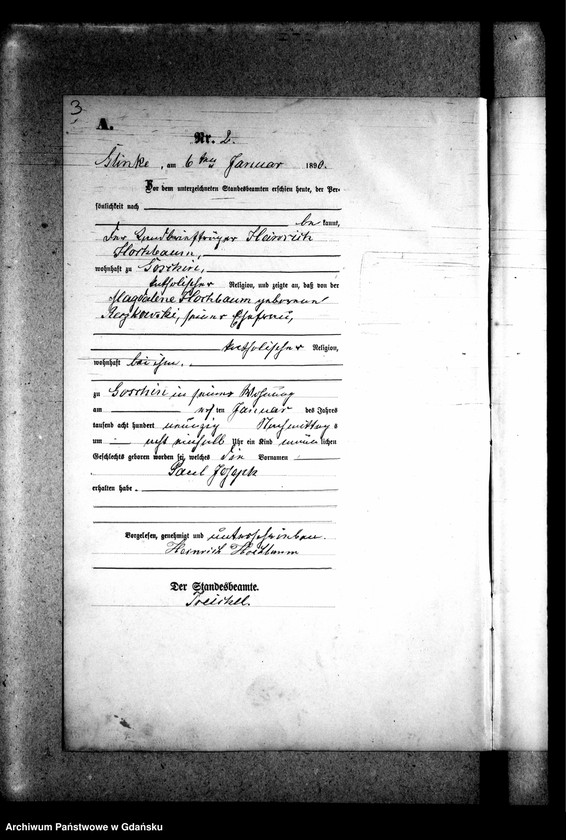 3
A.
Nr. 2.
Glinke, am 6ten Januar 1890.
Vor dem unterzeichneten Standesbeamten erschien heute, der Per-
sönlichkeit nach
bekannt,
der Landbriefträger Heinrich
Horstbaum,
wohnhaft zu
katholischer Religion, und zeigte an, daß von der
Magdalene Horstbaum geborene
seiner Ehefrau,
katholischer Religion,
wohnhaft bei ihm.
zu in seiner Wohnung
am ersten Januar des Jahres
tausend acht hundert neunzig Nachmittags
um acht einhalb Uhr ein Kind männlichen
Geschlechts geboren worden sei, welches die Vornamen
Paul Joseph
erhalten habe.
Vorgelesen, genehmigt und unterschrieben.
Heinrich Horstbaum
Der Standesbeamte.
Treichel.
Archiwum Państwowe w Gdańsku